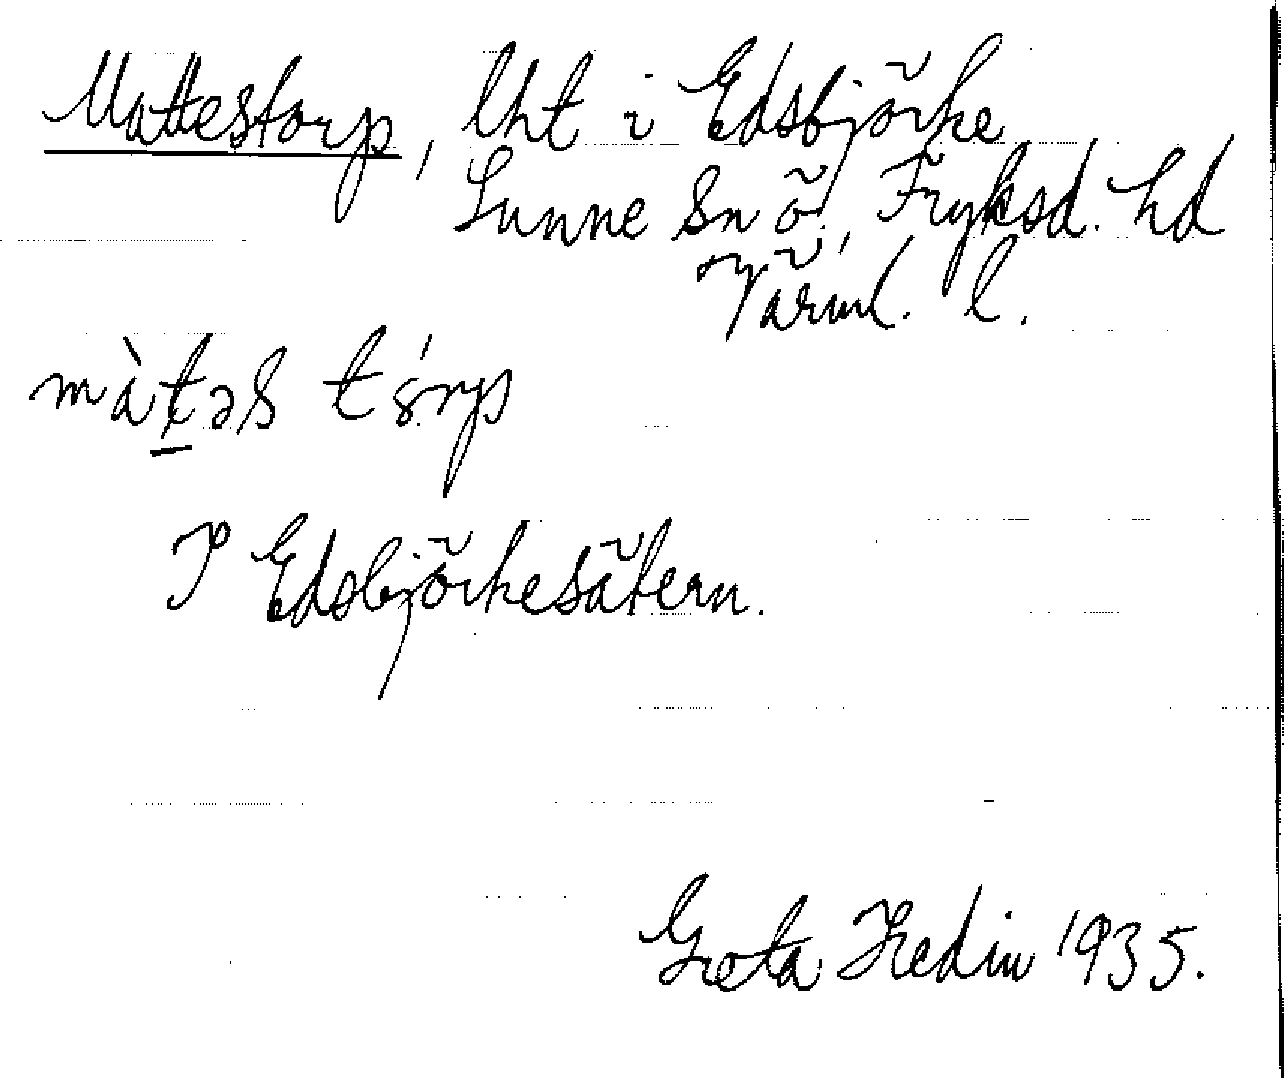 Mattestorp, lht i Edsbjörke
Sunne Sn ö, Fryksd. hd
Värml. l.
màtəs tórp
I Edsbjörkesätern.
Greta Hedin 1935.